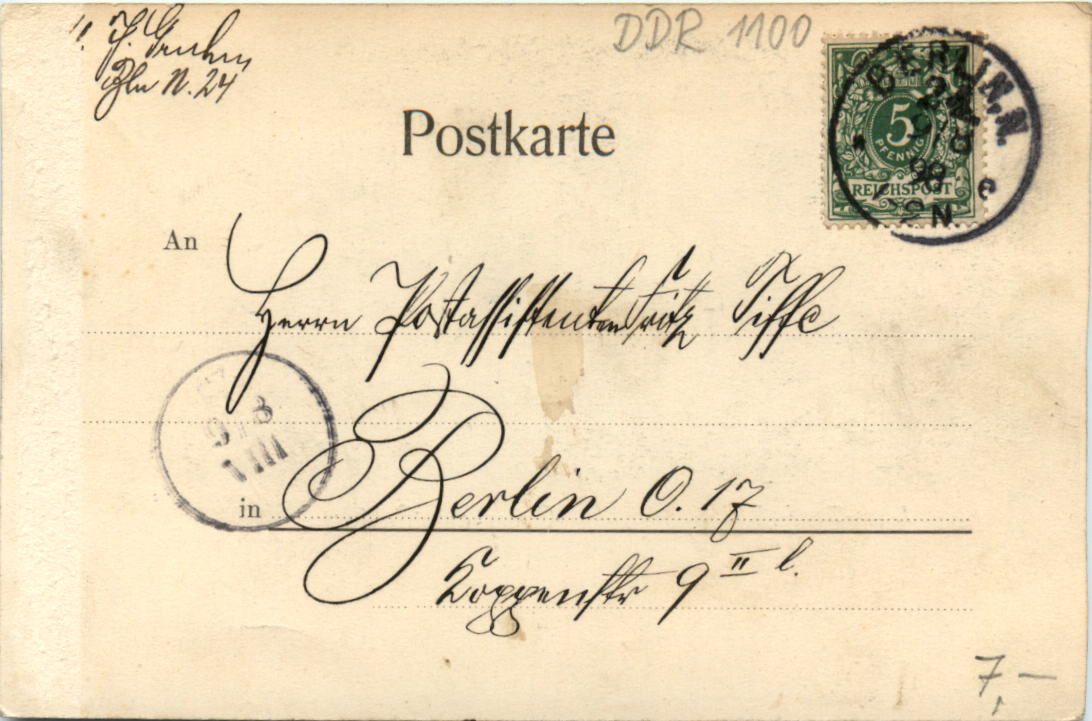 DDR 1100
Bln N. 24
Postkarte
BERLIN, N.
5
PFENNIG
REICHSPOST
98
N
c
An
Herrn Postassistenten Fritz
9 8
VIII
in Berlin O. 17
Koppenstr 9 II l.
7,–